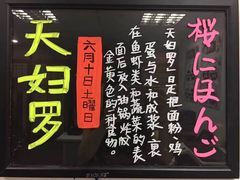 桜にほんご
天妇罗—是把面粉、鸡
蛋与水和成浆、裹
在鱼虾类和蔬菜的表
面后放入油锅炸成
金黄色的一种食物。
六月十日土曜日
天妇罗